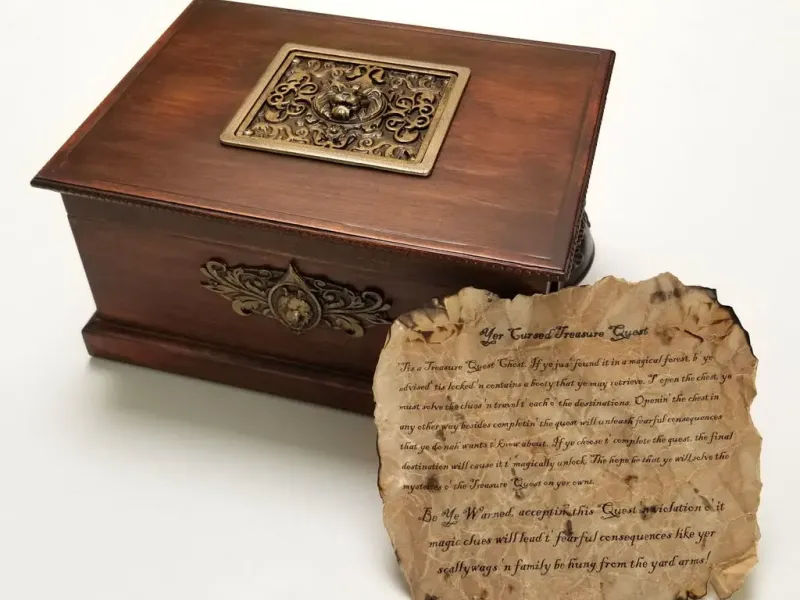 Yer Cursed Treasure Quest
'Tis a Treasure Quest Chest. If ye jus' found it in a magical forest, b' ye
advised 'tis locked 'n contains a booty that ye may retrieve. T' open the chest, ye
must solve the clues 'n travel t' each o' the destinations. Openin' the chest in
any other way besides completin' the quest will unleash fearful consequences
that ye do nah wants t' know about. If ye choose t' complete the quest, the final
destination will cause it t' magically unlock. The hope be that ye will solve the
mysteries o' the Treasure Quest on yer own.
Be Ye Warned, acceptin' this Quest 'n violation o' it
magic clues will lead t' fearful consequences like yer
scallywags 'n family be hung from the yard arms!